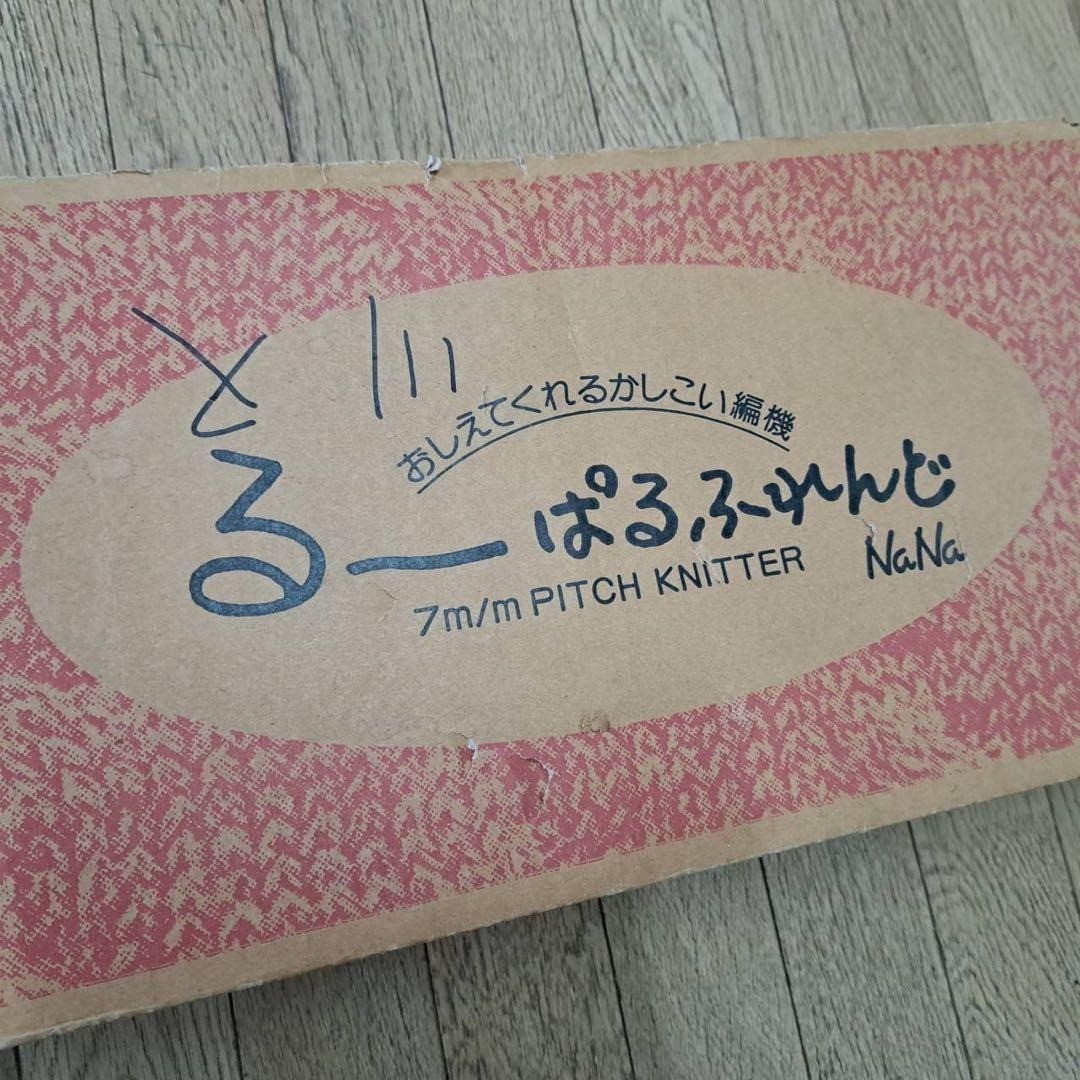 おしえてくれるかしこい編機
るーぱるふれんど
7m/m PITCH KNITTER
NaNa